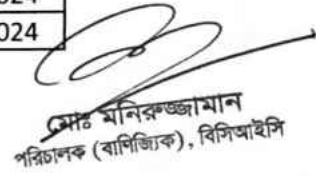 024
মোঃ মনিরুজ্জামান
পরিচালক (বাণিজ্যিক), বিসিআইসি